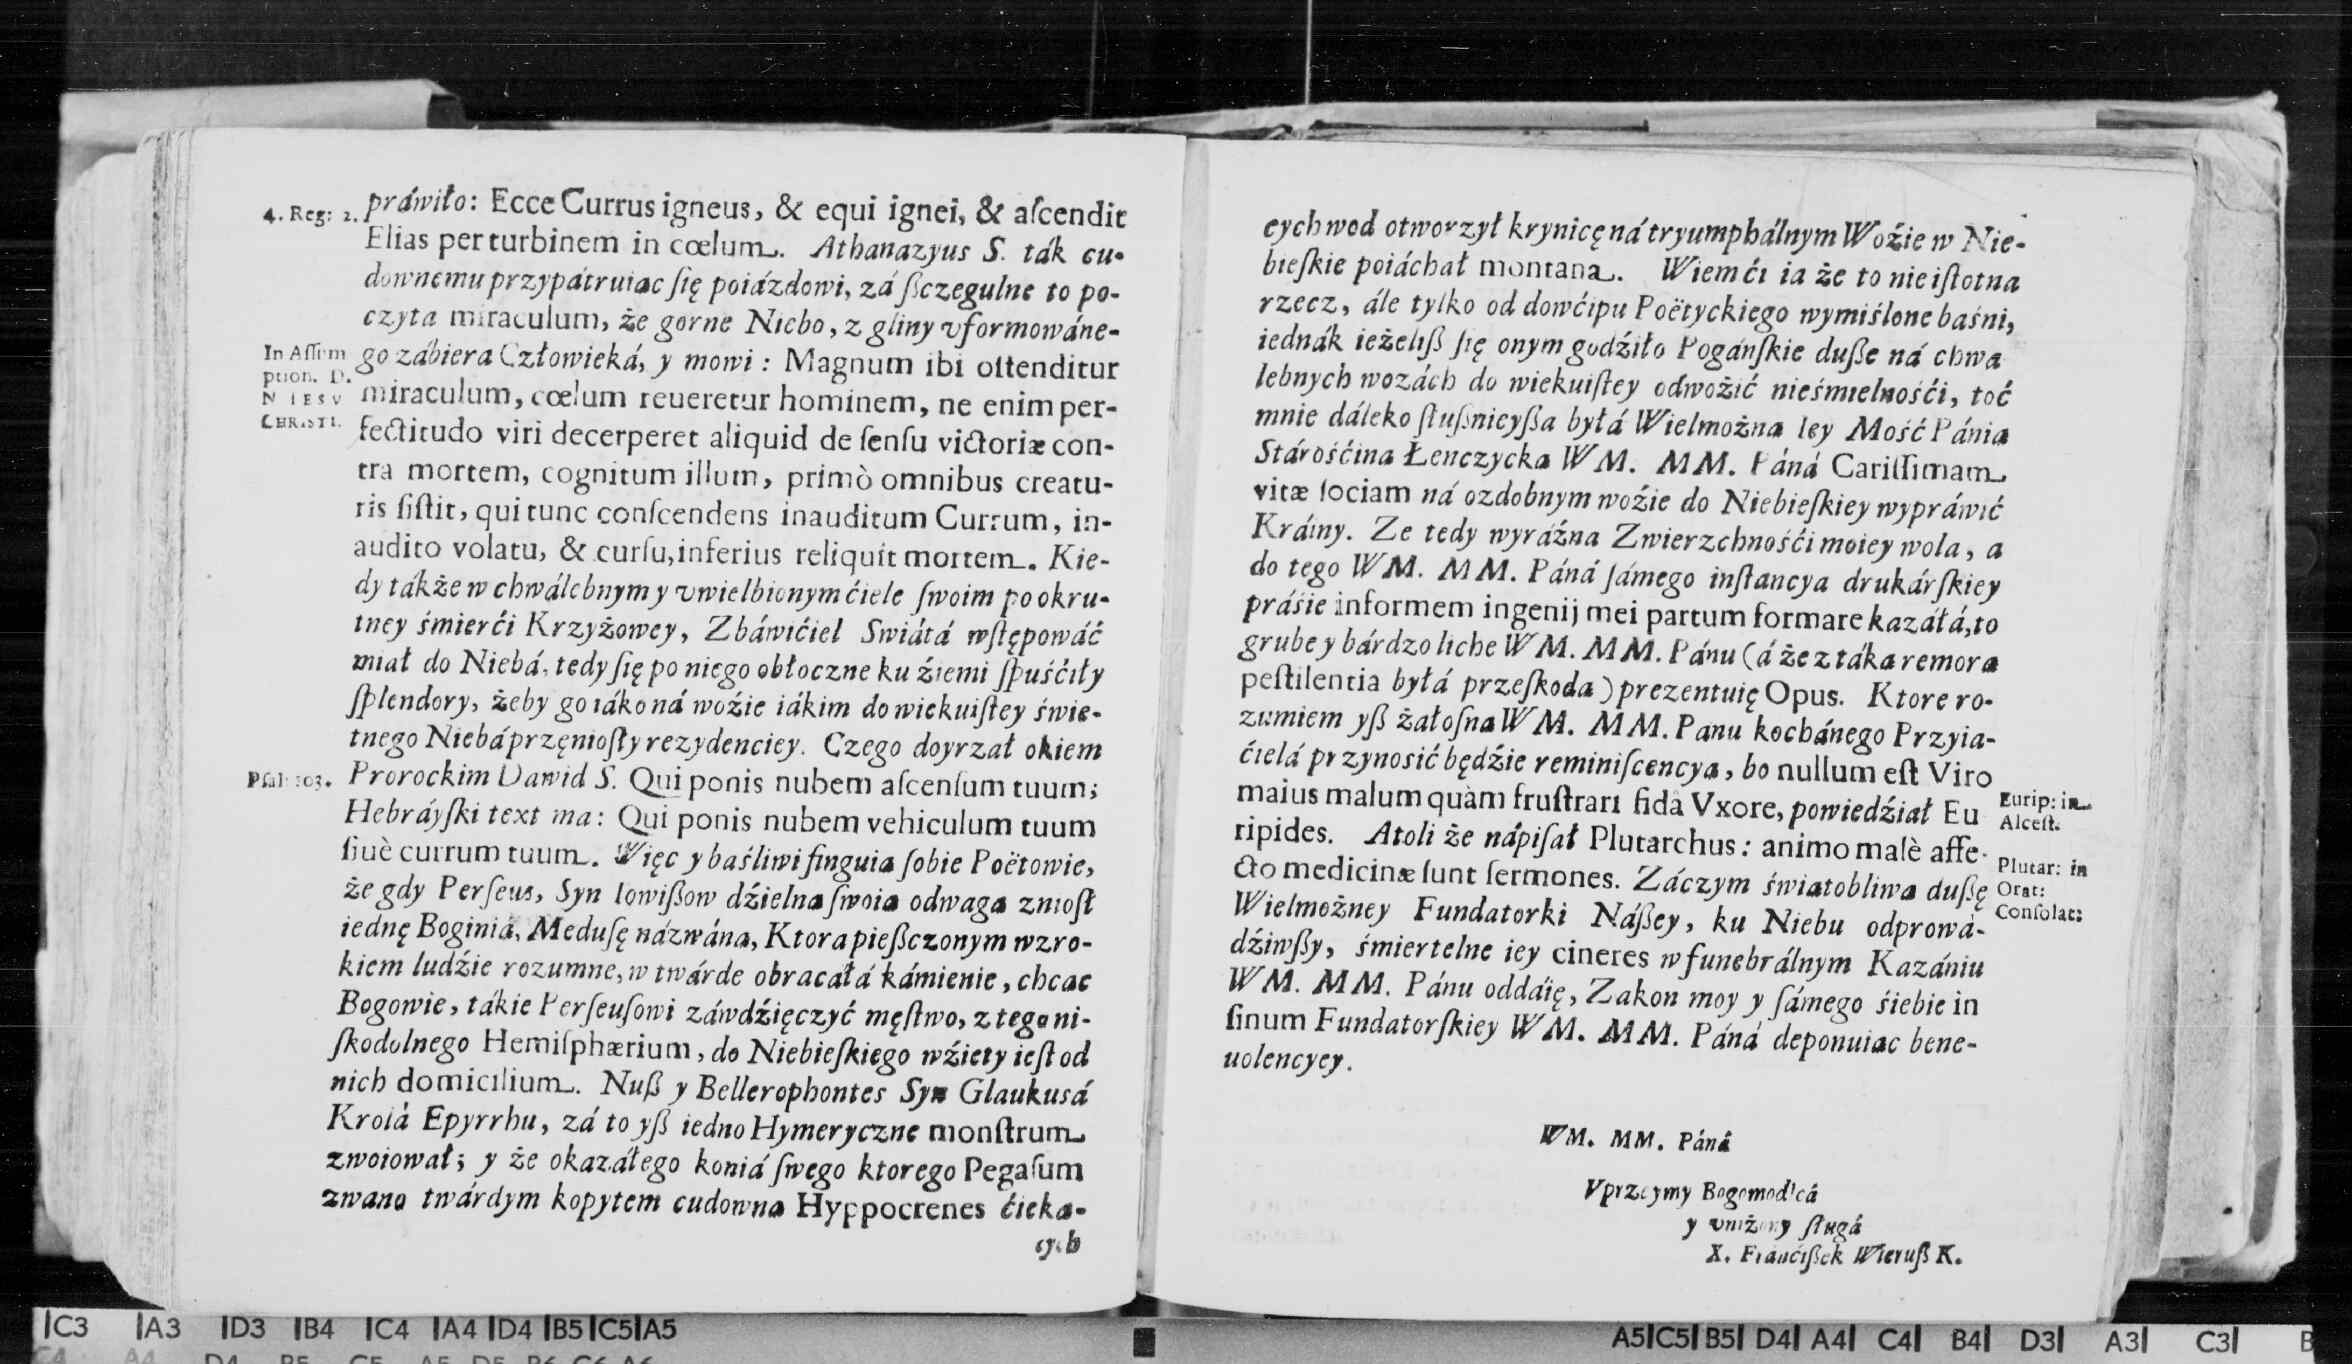 práwiło: Ecce Currus igneus, & equi ignei, & aſcendit
4. Reg: 2.
Elias per turbinem in cœlum. Athanazyus S. ták cu-
downemu przypátruiac ſię poiázdowi, zá ßczegulne to po-
czyta miraculum, że gorne Niebo, z gliny vformowáne-
go zábiera Człowieká, y mowi: Magnum ibi oſtenditur
In Aſſum
ption. D.
N IESV
CHRISTI.
miraculum, cœlum reueretur hominem, ne enim per-
fectitudo viri decerperet aliquid de ſenſu victoriæ con-
tra mortem, cognitum illum, primò omnibus creatu-
ris ſiſtit, qui tunc conſcendens inauditum Currum, in-
audito volatu, & curſu, inferius reliquit mortem. Kie-
dy tákże w chwálebnym y vwielbionym ćiele ſwoim po okru-
tney śmierći Krzyżowey, Zbáwićiel Swiátá wſtępowáć
miał do Niebá, tedy ſię po niego obłoczne ku źiemi ſpuśćiły
ſplendory, żeby go iáko ná woźie iákim do wiekuiſtey świe-
tnego Niebá przęnioſły rezydenciey. Czego doyrzał okiem
Prorockim Dawid S. Qui ponis nubem aſcenſum tuum;
Pſal: 103.
Hebráyſki text ma: Qui ponis nubem vehiculum tuum
ſiuè currum tuum. Więc y baśliwi finguia ſobie Poëtowie,
że gdy Perſeus, Syn Iowißow dźielna ſwoia odwaga znioſł
iednę Boginiá, Meduſę názwána, Ktora pießczonym wzro-
kiem ludźie rozumne, w twárde obracałá kámienie, chcac
Bogowie, tákie Perſeuſowi záwdźięczyć męſtwo, z tego ni-
ſkodolnego Hemiſphærium, do Niebieſkiego wźięty ieſt od
nich domicilium. Nuß y Bellerophontes Syn Glaukusá
Krolá Epyrrhu, zá to yß iedno Hymeryczne monſtrum
zwoiował; y że okazáłego koniá ſwego ktorego Pegaſum
zwano twárdym kopytem cudowna Hyppocrenes ćieka-
cych
cych wod otworzył krynicę ná tryumphálnym Woźie w Nie-
bieſkie poiáchał montana. Wiem ći ia że to nie iſtotna
rzecz, ále tylko od dowćipu Poëtyckiego wymiślone baśni,
iednák ieżeliß ſię onym godźiło Pogánſkie duße ná chwa
lebnych wozách do wiekuiſtey odwoźić nieśmielnośći, toć
mnie dáleko ſlußnieyßa byłá Wielmożna Iey Mość Pánia
Stárośćina Łenczycka WM. MM. Páná Cariſſimam
vitæ ſociam ná ozdobnym woźie do Niebieſkiey wypráwić
Kráiny. Ze tedy wyráźna Zwierzchnośći moiey wola, a
do tego WM. MM. Páná ſámego inſtancya drukárſkiey
práśie informem ingenij mei partum formare kazáłá, to
grube y bárdzo liche WM. MM. Pánu (á że z táka remora
peſtilentia byłá przeſkoda) prezentuię Opus. Ktore ro-
zumiem yß żałoſna WM. MM. Panu kochánego Przyia-
ćielá przynosić będźie reminiſcencya, bo nullum eſt Viro
maius malum quàm fruſtrari fidâ Vxore, powiedźiał Eu
Eurip: in
Alceſt.
ripides. Atoli że nápiſał Plutarchus: animo malè affe-
cto medicinæ ſunt ſermones. Záczym światobliwa dußę
Plutar: in
Orat:
Conſolat:
Wielmożney Fundatorki Náßey, ku Niebu odprowá-
dźiwßy, śmiertelne iey cineres w funebrálnym Kazániu
WM. MM. Pánu oddáię, Zakon moy y ſámego śiebie in
ſinum Fundatorſkiey WM. MM. Páná deponuiac bene-
uolencyey.
WM. MM. Páná
Vprzeymy Bogomodlcá
y vniżony ſługá
X. Fránćißek Wieruß K.
C3 A3 D3 B4 C4 A4 D4 B5 C5 A5
A5 C5 B5 D4 A4 C4 B4 D3 A3 C3 B